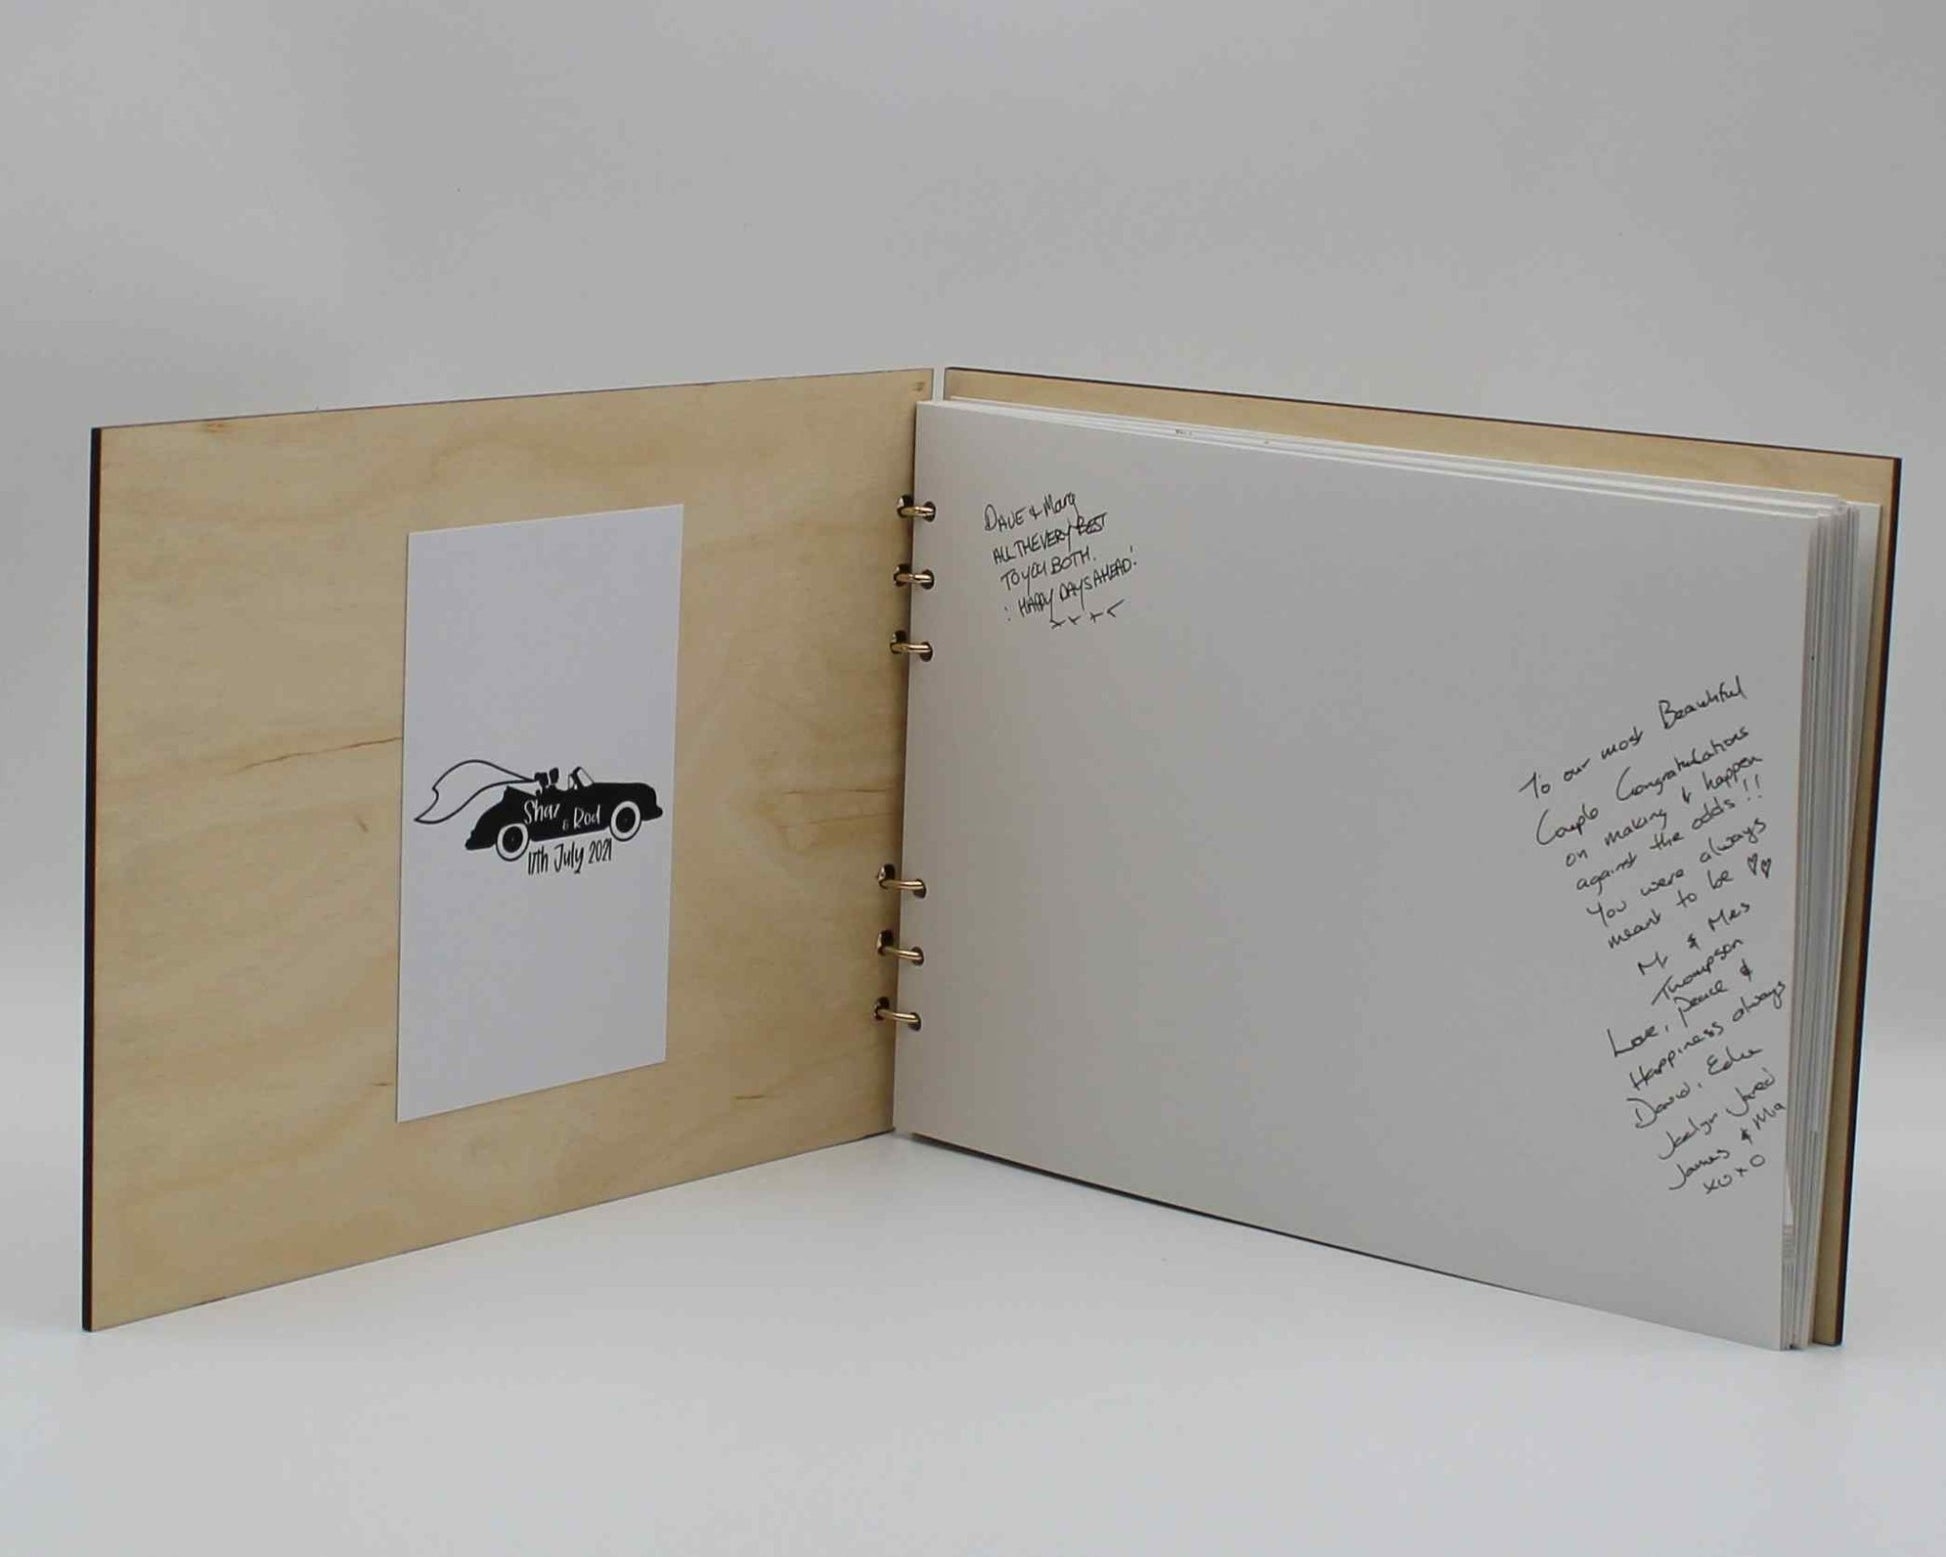 Shaz
& Rod
17th July 2021
DAVE & Mary
ALL THE VERY BEST
TO YOU BOTH.
! HAPPY DAYS AHEAD!
To our most Beautiful
Couple Congratulations
on making it happen
against the odds!!
You were always
meant to be ♡♡
Mr & Mrs
Thompson
Love, peace &
Happiness always
David, 
Joelyn Jared
James & Mia
xoxo